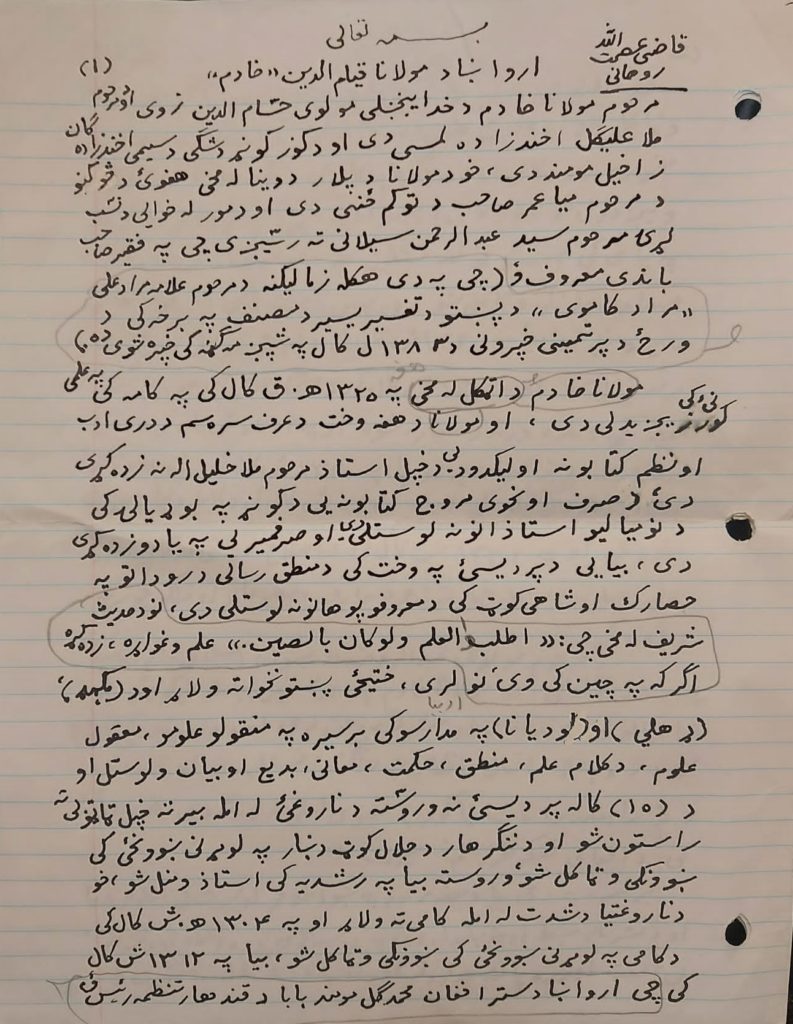 بسمه تعالی
قاضی عصمت الله
روحانی
(۱) اروا ښاد مولانا قیام الدین "خادم"
مرحوم مولانا خادم د خدایبخښلی مولوی حسّام الدین زوی او مرحوم
ملا علیګل اخندزاده لمسی دی او د کوز کونړ د شګی د سیمی اخندزاده ګان
زاخیل مومند دی، خو د مولانا د پلار د وینا له مخی هغوئ د څوکنو
د مرحوم میا عمر صاحب د توکم څخه دی او د مور له خوایی د نسَب
لړئ مرحوم سید عبدالرحمن سیلانی ته رسیږی چی په فقیر صاحب
باندی معروف ؤ (چی په دی هکله زما لیکنه د مرحوم علامه مراد علی
"مراد کاموی" د پښتو د تفسیر یسیر د مصنف په برخه کی د
ورځ د پرتمینی خپرونی د ۱۳۸۳ ل کال په شپږمه ګڼه کی خپره شوی ده)
مولانا خادم د اټکل له مخی په ۱۳۲۵ هـ. ق کال کی په کامه کی په علمی
کورنئ کی زیږیدلی دی، او مولانا د هغه وخت د عرف سره سم د دری ادب
او نظم کتابونه او لیک دود یی د خپل استاذ مرحوم ملا خلیل اله نه زده کړی
دئ (صرف او نحوی مروج کتابونه یی د کونړ په بوډیالی کی
د نومیالیو استاذانو نه لوستلی دی او صرفمیر یی په یادو زده کړی
دی، بیایی د پردیسئ په وخت کی د منطق رسالی د روداتو په
حصارک او شاهی کوټ کی د معروفو پوهانو نه لوستلی دی، نو د حدیث
شریف له مخی چی: "اطلب العلم ولوکان بالصین." علم وغواړه، زده کړه
اګر که په چین کی وئ نو لری، ختیځی پښتونخوا ته ولاړ او د
(ډهلی) او (لودیانا) په مدارسو کی برسیره په منقولو علومو، معقول
علوم، د کلام علم، منطق، حکمت، معانی، بدیع او بیان ولوستل او
د (۱۵) کاله پردیسئ نه وروسته د ناروغئ له امله بیرته خپل ټاټوبی ته
راستون شو او د ننګرهار د جلال کوټ د ښار په لومړنی ښوونځی کی
ښوونکی وټاکل شو وروسته بیا په رشدیه کی استاذ ومنل شو، خو
د ناروغتیا د شدت له امله کامی ته ولاړ او په ۱۳۰۴ هـ. ش کال کی
د کامی په لومړنی ښوونځی کی ښوونکی وټاکل شو، بیا په ۱۳۱۲ ش کال
کی چی اروا ښاد ستر افغان محمد ګل مومند بابا د قندهار تنظمه رئیس ؤ